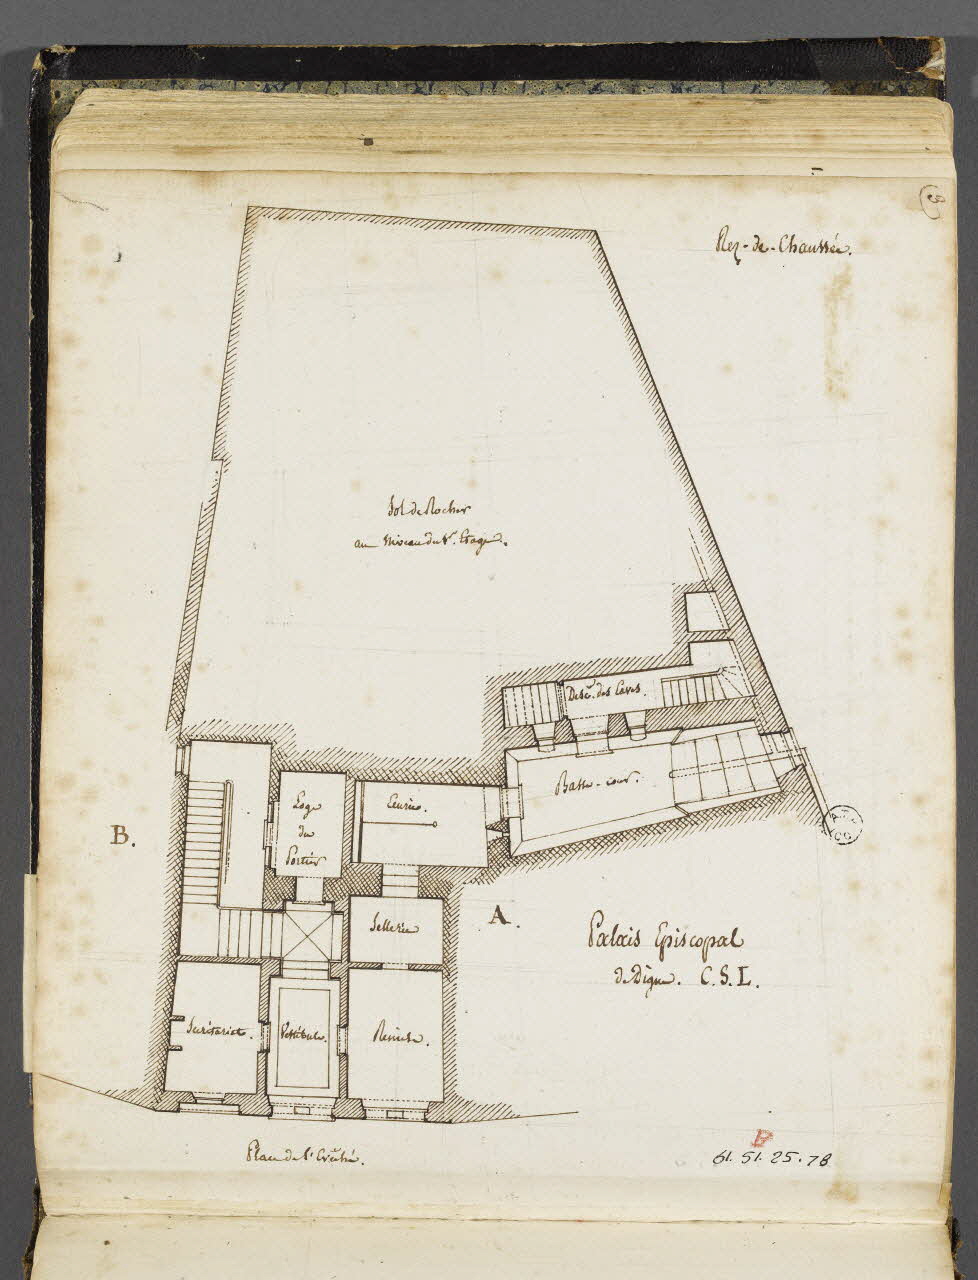 3
Rez-de-Chaussée.
Sol de Rocher
au Niveau du 1er. Etage.
Desc.te des Caves.
Basse-cour.
Loge
du
Portier
Ecurie.
B.
A.
Sellerie
Palais Episcopal
de Digne. C.S.L.
Secrétariat.
Vestibule.
Remise.
Place de l'Evêché.
61.51.25.78